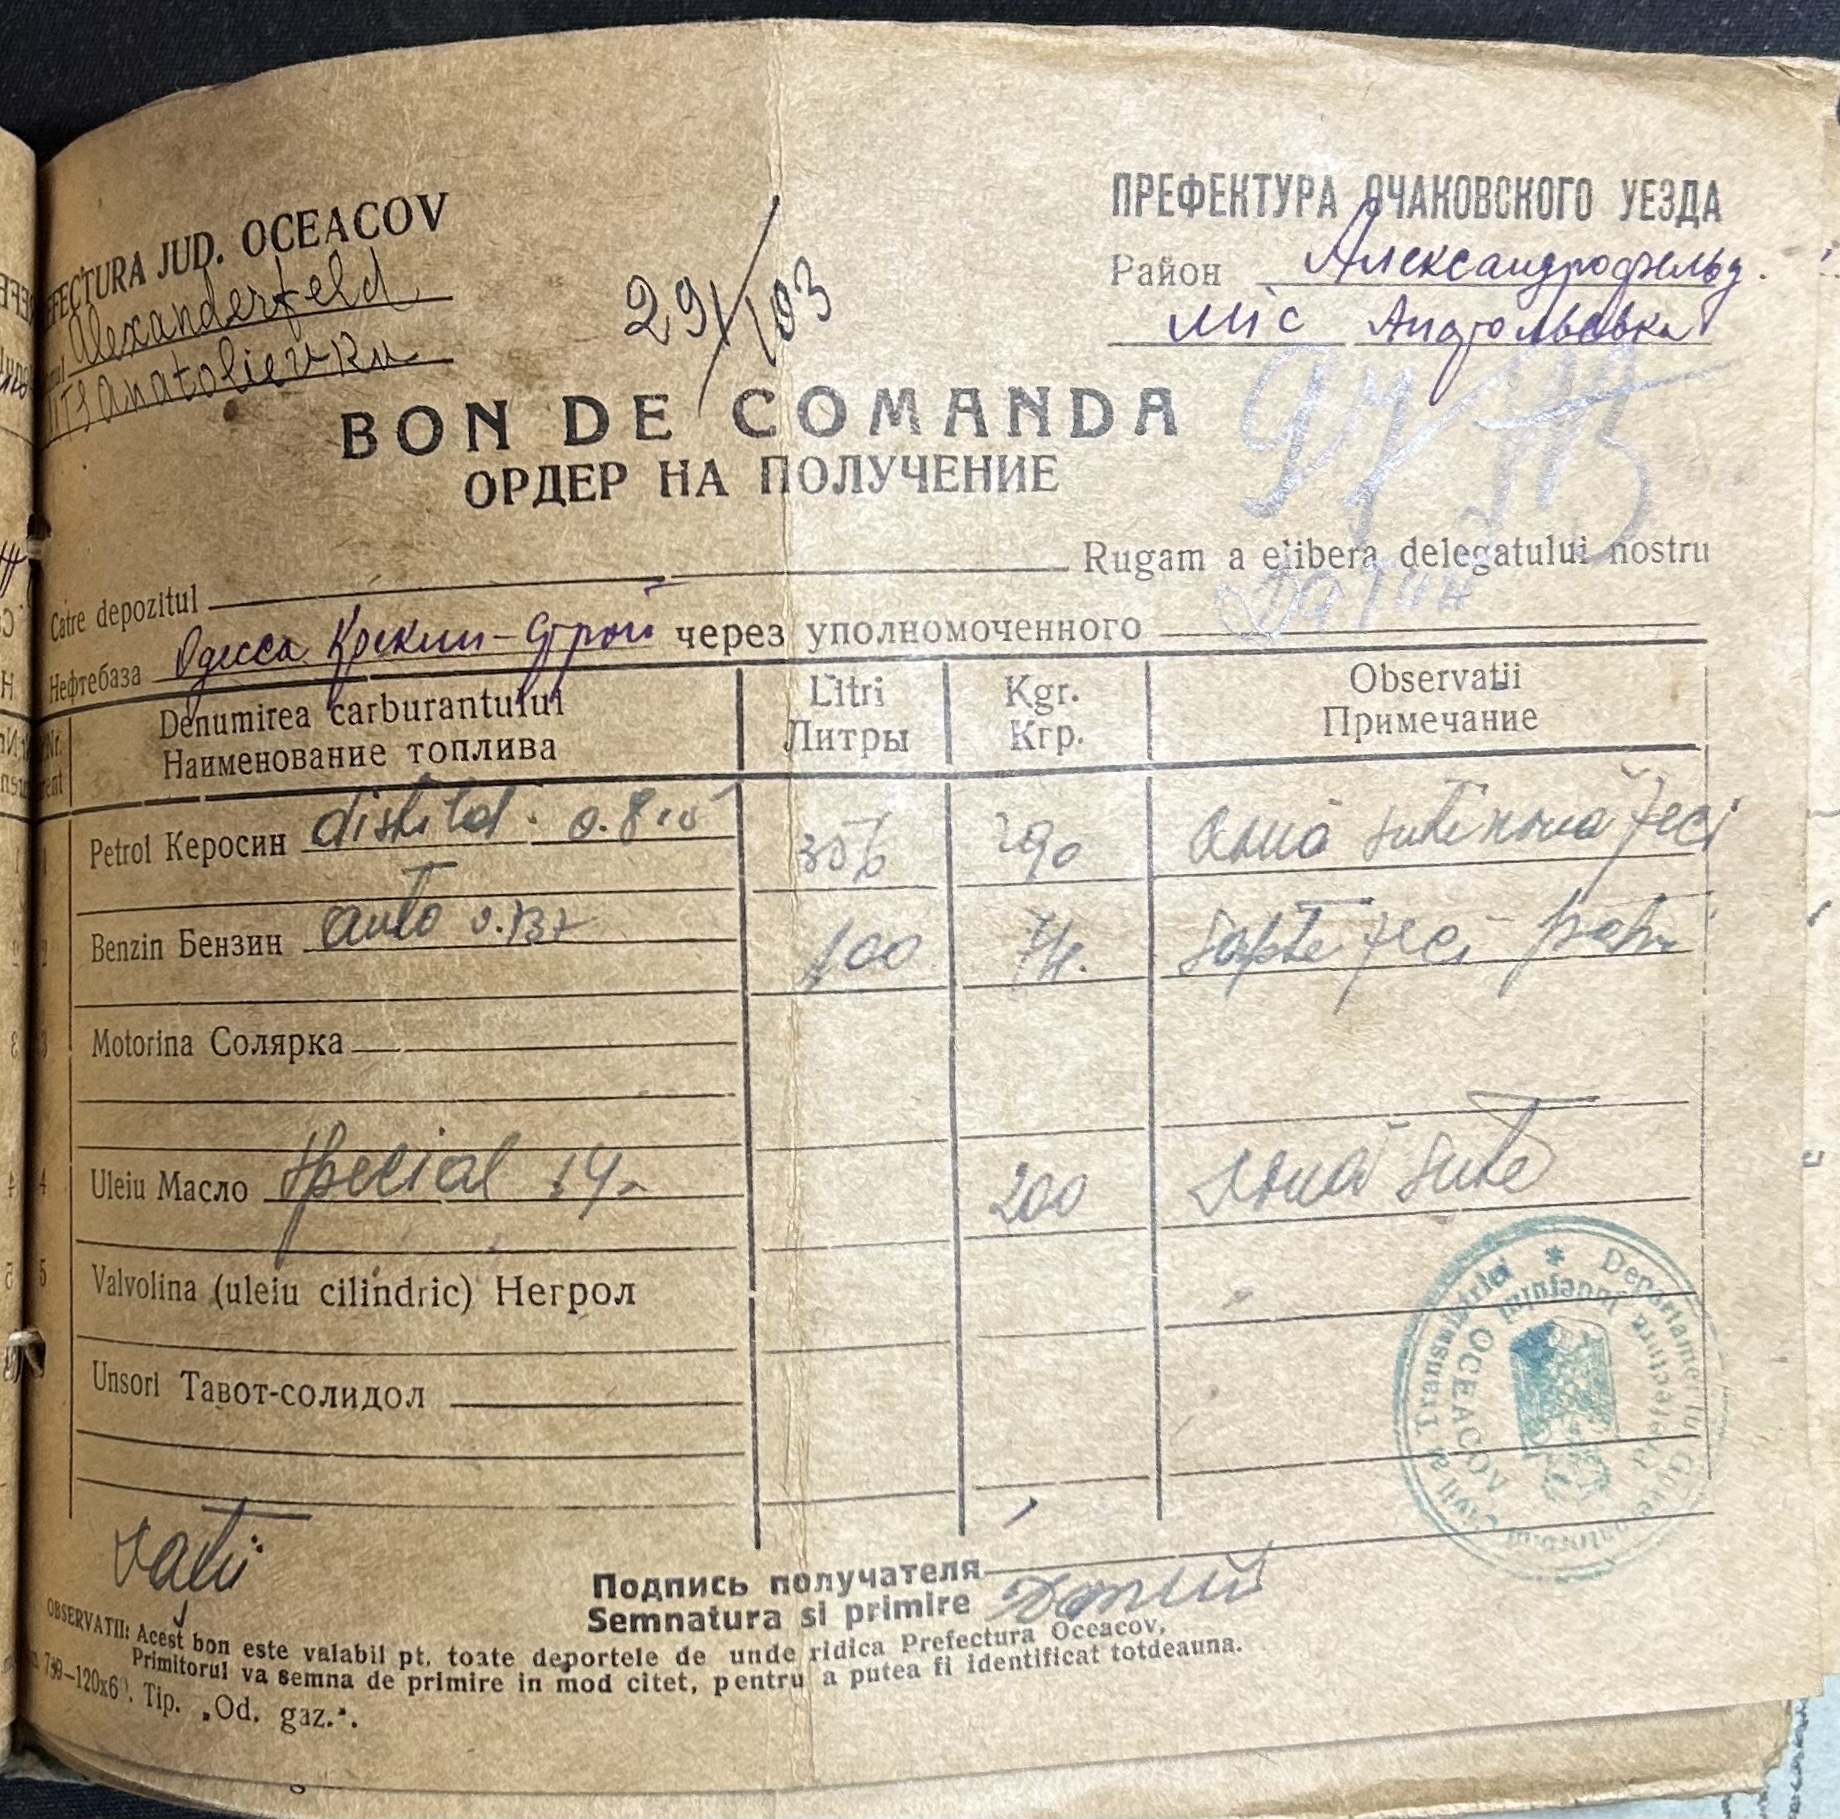 PREFECTURA JUD. OCEACOV
Alexanderfeld
MTS Anatolievka
29/X 193
ПРЕФЕКТУРА ОЧАКОВСКОГО УЕЗДА
Район Александрофельд.
міс
BON DE COMANDA
ОРДЕР НА ПОЛУЧЕНИЕ
Catre depozitul Rugam a elibera delegatului nostru
Нефтебаза Одесса через уполномоченного
Nr. Denumirea carburantului Litri Kgr. Observatii
Наименование топлива Литры Кгр. Примечание
1 Petrol Керосин distilat 290 două sute nouă zeci
2 Benzin Бензин auto 0.737 100 74. șapte zeci patru
3 Motorina Солярка
4 Uleiu Масло special 200 două sute
5 Valvolina (uleiu cilindric) Негрол
Unsori Тавот-солидол
Departamentul Transnistria
Prefectura Judeţului
OCEACOV
Подпись получателя
Semnatura si primire
OBSERVATII: Acest bon este valabil pt. toate deportele de unde ridica Prefectura Oceacov,
Primitorul va semna de primire in mod citet, pentru a putea fi identificat totdeauna.
799—120x6 . Tip. „Od. gaz.".